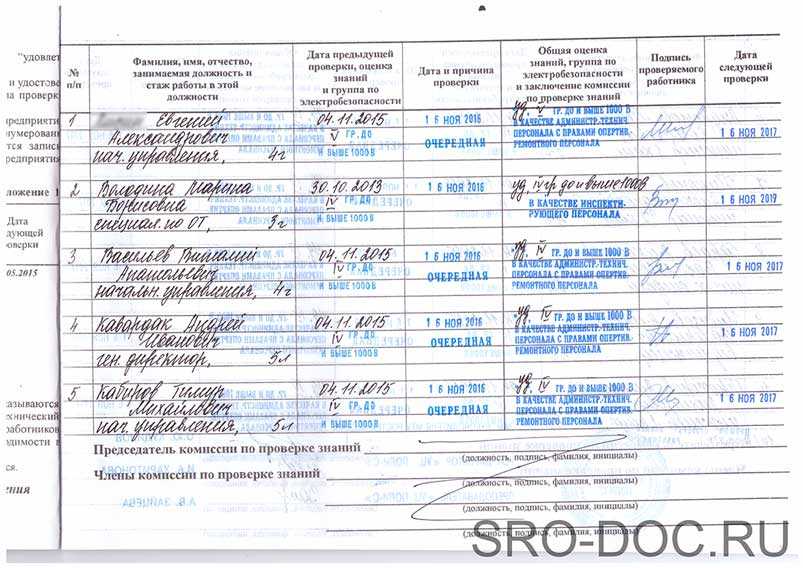 "удовлет
и удостове
на проверк
предприяти
нумерован
тся запис
редприятия
ложение 1
Дата
дующей
роверки
.05.2015
азываются
хнический
работников
одимости в
ся.
ения
№ п/п
Фамилия, имя, отчество,
занимаемая должность и
стаж работы в этой
должности
Дата предыдущей
проверки, оценка
знаний
и группа по
электробезопасности
Дата и причина
проверки
Общая оценка
знаний, группа по
электробезопасности
и заключение комиссии
по проверке знаний
Подпись
проверяемого
работника
Дата
следующей
проверки
1
Евгений
Александрович
нач. управления, 4г
04.11.2015
V ГР. ДО
И ВЫШЕ 1000 В
16 НОЯ 2016
ОЧЕРЕДНАЯ
уд. V ГР. ДО И ВЫШЕ 1000 В
В КАЧЕСТВЕ АДМИНИСТР.-ТЕХНИЧ.
ПЕРСОНАЛА С ПРАВАМИ ОПЕРТИВ.
РЕМОНТНОГО ПЕРСОНАЛА
16 НОЯ 2017
2
Володина Марина
Борисовна
специал. по ОТ, 3г
30.10.2013
IV ГР. ДО
И ВЫШЕ 1000 В
16 НОЯ 2016
уд. IV гр до и выше 1000В
В КАЧЕСТВЕ ИНСПЕКТИ-
РУЮЩЕГО ПЕРСОНАЛА
16 НОЯ 2017
3
Васильев Виталий
Анатольевич
начальн. управления, 4г
04.11.2015
IV ГР. ДО
И ВЫШЕ 1000 В
16 НОЯ 2016
ОЧЕРЕДНАЯ
уд. IV ГР. ДО И ВЫШЕ 1000 В
В КАЧЕСТВЕ АДМИНИСТР.-ТЕХНИЧ.
ПЕРСОНАЛА С ПРАВАМИ ОПЕРТИВ.
РЕМОНТНОГО ПЕРСОНАЛА
16 НОЯ 2017
4
Кавардак Андрей
Иванович
ген. директор, 5л
04.11.2015
IV ГР. ДО
И ВЫШЕ 1000 В
16 НОЯ 2016
ОЧЕРЕДНАЯ
уд. IV ГР. ДО И ВЫШЕ 1000 В
В КАЧЕСТВЕ АДМИНИСТР.-ТЕХНИЧ.
ПЕРСОНАЛА С ПРАВАМИ ОПЕРТИВ.
РЕМОНТНОГО ПЕРСОНАЛА
16 НОЯ 2017
5
Кабиров Тимур
Михайлович
нач. управления, 5л
04.11.2015
IV ГР. ДО
И ВЫШЕ 1000 В
16 НОЯ 2016
ОЧЕРЕДНАЯ
уд. IV ГР. ДО И ВЫШЕ 1000 В
В КАЧЕСТВЕ АДМИНИСТР.-ТЕХНИЧ.
ПЕРСОНАЛА С ПРАВАМИ ОПЕРТИВ.
РЕМОНТНОГО ПЕРСОНАЛА
16 НОЯ 2017
Председатель комиссии по проверке знаний
(должность, подпись, фамилия, инициалы)
Члены комиссии по проверке знаний
(должность, подпись, фамилия, инициалы)
(должность, подпись, фамилия, инициалы)
(должность, подпись, фамилия, инициалы)
SRO-DOC.RU